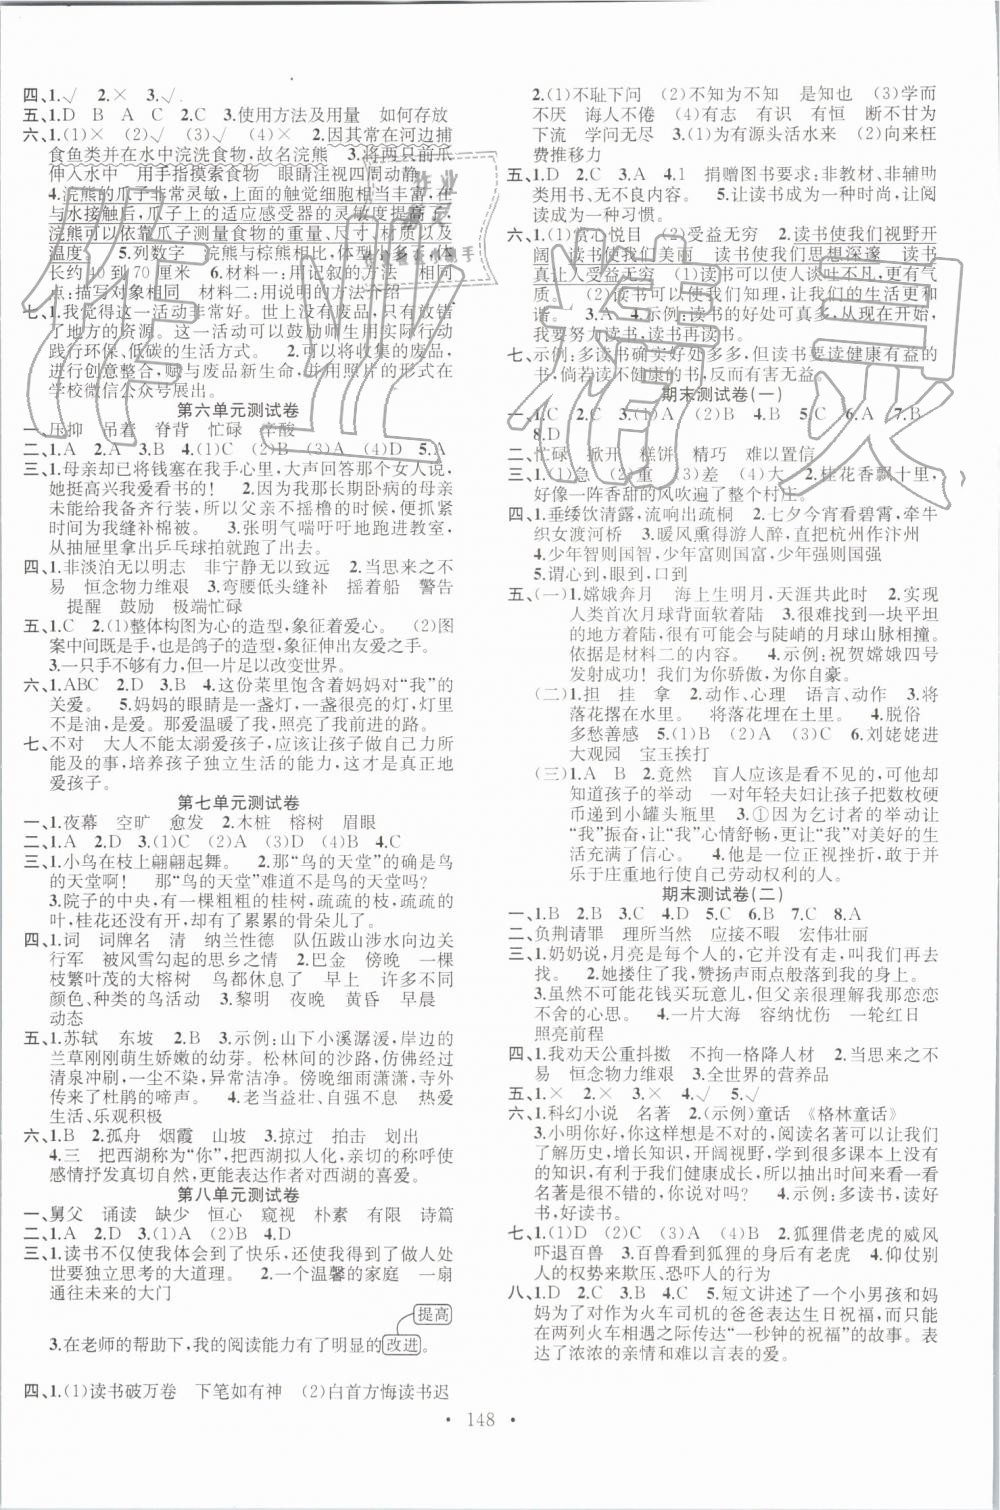 四、1.√　2.×　3.√
五、1.D　B　A　C　2.C　3.使用方法及用量　如何存放
六、1.(1)×　(2)√　(3)√　(4)×　2.因其常在河边捕
食鱼类并在水中浣洗食物,故名浣熊　3.将两只前爪
伸入水中　用手指摸索食物　眼睛注视四周动静
4.浣熊的爪子非常灵敏,上面的触觉细胞相当丰富,在
与水接触后,爪子上的适应感受器的灵敏度提高了,
浣熊可以依靠爪子测量食物的重量、尺寸、材质甚至
温度　5.列数字　浣熊与棕熊相比,体型小多了,
体长约40到70厘米　6.材料一:用记叙的方法　相同
点:描写对象相同　材料二:用说明的方法介绍
七、1.我觉得这一活动非常好。世上没有废品,只有放错
了地方的资源。这一活动可以鼓励师生用实际行动
践行环保、低碳的生活方式。　2.可以将收集的废品,
进行创意整合,赋与废品新生命,并用照片的形式在
学校微信公众号展出。
第六单元测试卷
一、压抑　吊着　脊背　忙碌　辛酸
二、1.A　2.D　3.B　4.(1)C　(2)B　(3)A　(4)D　5.A
三、1.母亲却已将钱塞在我手心里,大声回答那个女人说,
她挺高兴我爱看书的!　2.因为我那长期卧病的母亲
未能给我备齐行装,所以父亲不得摸橹的时候,便抓紧
时间为我缝补棉被。　3.张明气喘吁吁地跑进教室,
从抽屉里拿出乒乓球拍就跑了出去。
四、1.非淡泊无以明志　非宁静无以致远　2.当思来之不
易　恒念物力维艰　3.弯腰低头缝补　摇着船　警告
提醒　鼓励　极端忙碌
五、1.C　2.(1)整体构图为心的造型,象征着爱心。　(2)图
案中间既是手,也是鸽子的造型,象征伸出友爱之手。
3.一只手不够有力,但一片足以改变世界。
六、1.ABC　2.D　3.B　4.这份菜里饱含着妈妈对“我”的
关爱。　5.妈妈的眼睛是一盏灯,一盏很亮的灯,灯里
不是油,是爱。那爱温暖了我,照亮了我前进的路。
七、不对　大人不能太溺爱孩子,应该让孩子做自己力所
能及的事,培养孩子独立生活的能力,这才是真正地
爱孩子。
第七单元测试卷
一、1.夜幕　空旷　愈发　2.木桩　榕树　眉眼
二、1.A　2.D　3.(1)C　(2)A　(3)B　4.(1)A　(2)D
三、1.小鸟在枝上翩翩起舞。　2.那“鸟的天堂”的确是鸟
的天堂啊!　那“鸟的天堂”难道不是鸟的天堂吗?
3.院子的中央,有一棵粗粗的桂树,疏疏的枝,疏疏的
叶,桂花还没有开,却有了累累的骨朵儿了。
四、1.词　词牌名　清　纳兰性德　队伍跋山涉水向边关
行军　被风雪勾起的思乡之情　2.巴金　傍晚　一棵
枝繁叶茂的大榕树　鸟都试息了　早上　许多不同
颜色、种类的鸟活动　3.黎明　夜晚　黄昏　早晨
动态
五、1.苏轼　东坡　2.B　3.示例:山下小溪潺湲,岸边的
兰草刚刚萌生娇嫩的幼芽。松林间的沙路,仿佛经过
清泉冲刷,一尘不染,异常洁净。傍晚细雨潇潇,寺外
传来了杜鹃的啼声。　4.老当益壮、自强不息　热爱
生活、乐观积极
六、1.B　2.孤舟　烟霞　山坡　3.掠过　拍击　划出
4.三　把西湖称为“你”,把西湖拟人化,亲切的称呼使
感情抒发真切自然,更能表达作者对西湖的喜爱。
第八单元测试卷
一、舅父　诵读　缺少　恒心　窥视　朴素　有限　诗篇
二、1.A　2.D　3.(1)A　(2)B　4.D
三、1.读书不仅使我体会到了快乐,还使我悟到了做人处
世要独立思考的大道理。　2.一个温馨的家庭　一扇
通往未来的大门
提高
3.在老师的帮助下,我的阅读能力有了明显的改进。
四、1.(1)读书破万卷　下笔如有神　(2)白首方悔读书迟
2.(1)不耻下问　(2)不知为不知　是知也　(3)学而
不厌　诲人不倦　(4)有志　有识　有恒　断不甘为
下流　学问无尽　3.(1)为有源头活水来　(2)向来枉
费推移力
五、1.D　2.C　3.A　4.1　捐赠图书要求:非教材、非辅助
类用书,无不良内容。　5.让读书成为一种时尚,让阅
读成为一种习惯。
六、1.(1)赏心悦目　(2)受益无穷　2.读书使我们视野开
阔　读书使我们美丽　读书使我们思想深邃　读书
真让人受益无穷　(1)读书可以使人谈吐不凡,更有气
质。　(2)读书可以使我们知理,让我们的生活更和
谐。　3.A　4.示例:读书的好处可真多,从现在开始,我
要努力读书,读书再读书。
七、示例:多读书确实好处多多,但读书要读健康有益的
书,倘若读不健康的书,则有害无益。
期末测试卷(一)
一、1.C　2.C　3.(1)A　(2)B　4.B　5.C　6.A　7.B
8.D
二、忙碌　掀开　糕饼　精巧　难以置信
三、1.(1)急　(2)重　(3)差　(4)大　2.桂花香飘十里,
好像一阵香甜的风吹遍了整个村庄。
四、1.垂緌饮清露,流响出疏桐　2.七夕今宵看碧霄,牵牛
织女渡河桥　3.暖风熏得游人醉,直把杭州作汴州
4.少年智则国智,少年富则国富,少年强则国强
5.谓心到,眼到,口到
五、(一)1.嫦娥奔月　海上生明月,天涯共此时　2.实现
人类首次月球背面软着陆　3.很难找到一块平坦
的地方着陆,很有可能会与陡峭的月球山脉相撞。
依据是材料二的内容。　4.示例:祝贺嫦娥四号
发射成功!我们为你骄傲,为你自豪。
(二)1.担　挂　拿　2.动作、心理　语言、动作　3.将
落花撂在水里。　将落花埋在土里。　4.脱俗
多愁善感　5.(1)D　(2)A　(3)C　6.刘姥姥进
大观园　宝玉挨打
(三)1.A　B　2.竟然　盲人应该是看不见的,可他却
知道孩子的举动　一对年轻夫妇让孩子将数枚硬
币送到小罐头瓶里　3.①因为乞讨者的举动让
“我”振奋,让“我”心情舒畅,更让“我”对美好的生
活充满了信心。　4.他是一位正视挫折,并善于
乐于庄重地行使自己劳动权利的人。
期末测试卷(二)
一、1.B　2.D　3.C　4.D　5.C　6.A　7.C　8.A
二、负荆请罪　理所当然　应接不暇　宏伟壮丽
三、1.奶奶说,月亮是每个人的,它并没有来,要我们再去
找。　2.她搂住了我,赞扬声雨点般落到我的身上。
3.虽然不可能花钱买玩意儿,但父亲很理解我那恋恋
不舍的心思。　4.一片大海　容纳忧伤　一轮红日
照亮前程
四、1.我劝天公重抖擞　不拘一格降人材　2.当思来之不
易　恒念物力维艰　3.全世界的营养品
五、1.×　2.×　3.×　4.√　5.√
六、1.科幻小说　名著　2.(示例)童话　《格林童话》
3.小明你好,你这样想是不对的,阅读名著可以让我们
了解历史、增长知识、开阔视野,学到很多课本上没有
的知识,有利于我们健康成长,所以抽出时间看一看
名著是很不错的,你说对吗?　4.示例:多读书,读好
书,好读书。
七、1.(1)D　(2)C　(3)A　(4)B　2.狐狸借老虎的威风
吓退百兽　3.百兽看到狐狸的身后有老虎　4.仰仗别
人的权势来欺压、恐吓人的行为
八、1.D　2.B　3.A　4.C　5.短文讲述了一个小男孩和妈
妈为了对作为火车司机的爸爸表达生日祝福,而只能
在两列火车相遇之际传达“一秒钟的祝福”的故事。表
达了浓浓的亲情和难以言表的爱。
• 148 •